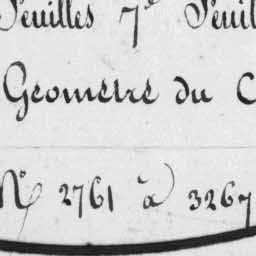 Feuilles 7e Feuil
Géomètre du C
N° 2761 à 3267